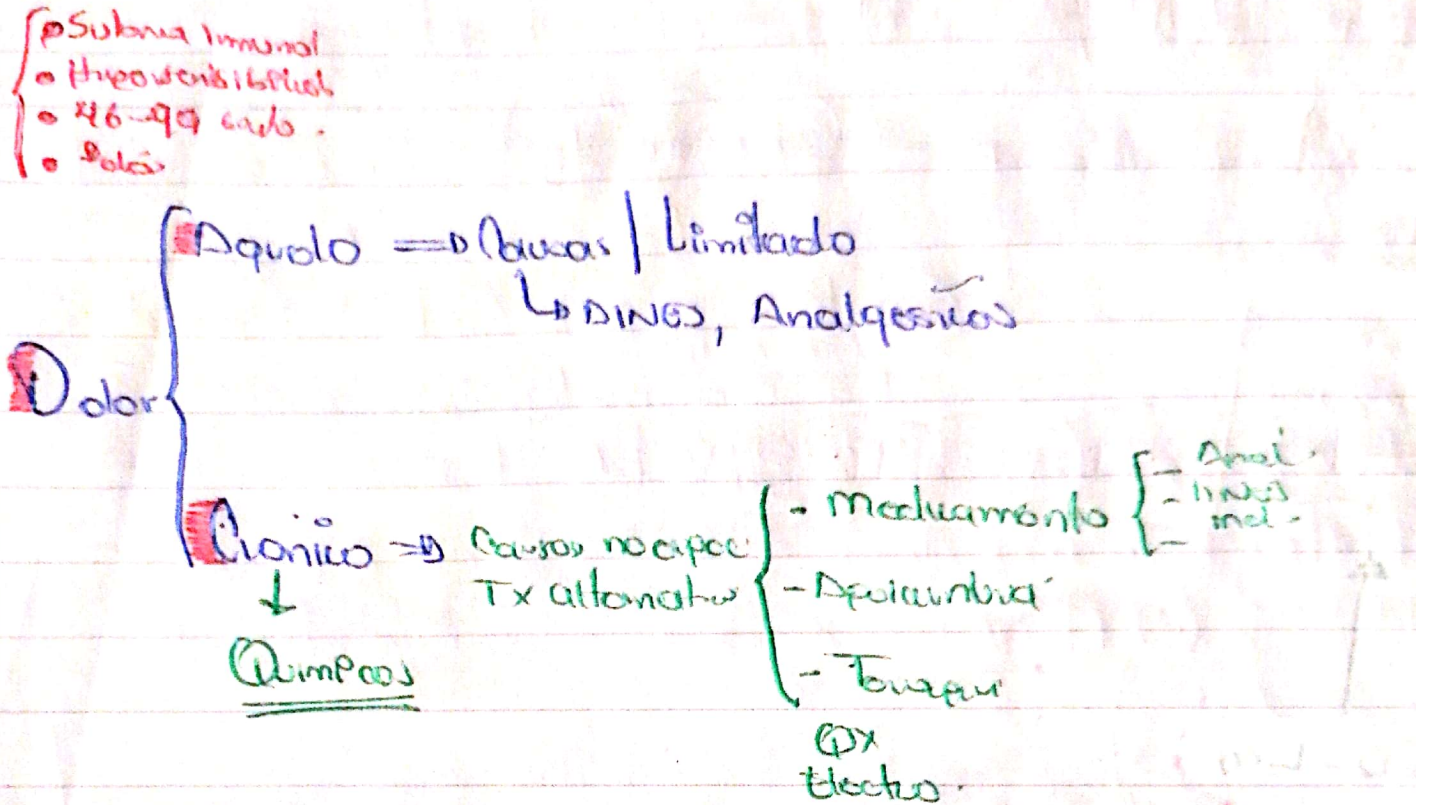 Inmunol
• Hipersensibilidad
• 46-99
• Dolor
Agudo => Causas | Limitado
↳ AINES, Analgesicos
Dolor
Cronico => Causas no espec
Tx alternativo
↓
Quimicos
- Medicamento
- Anal.
- AINES
-
- Acupuntura
- Terapia
Qx
Electro.